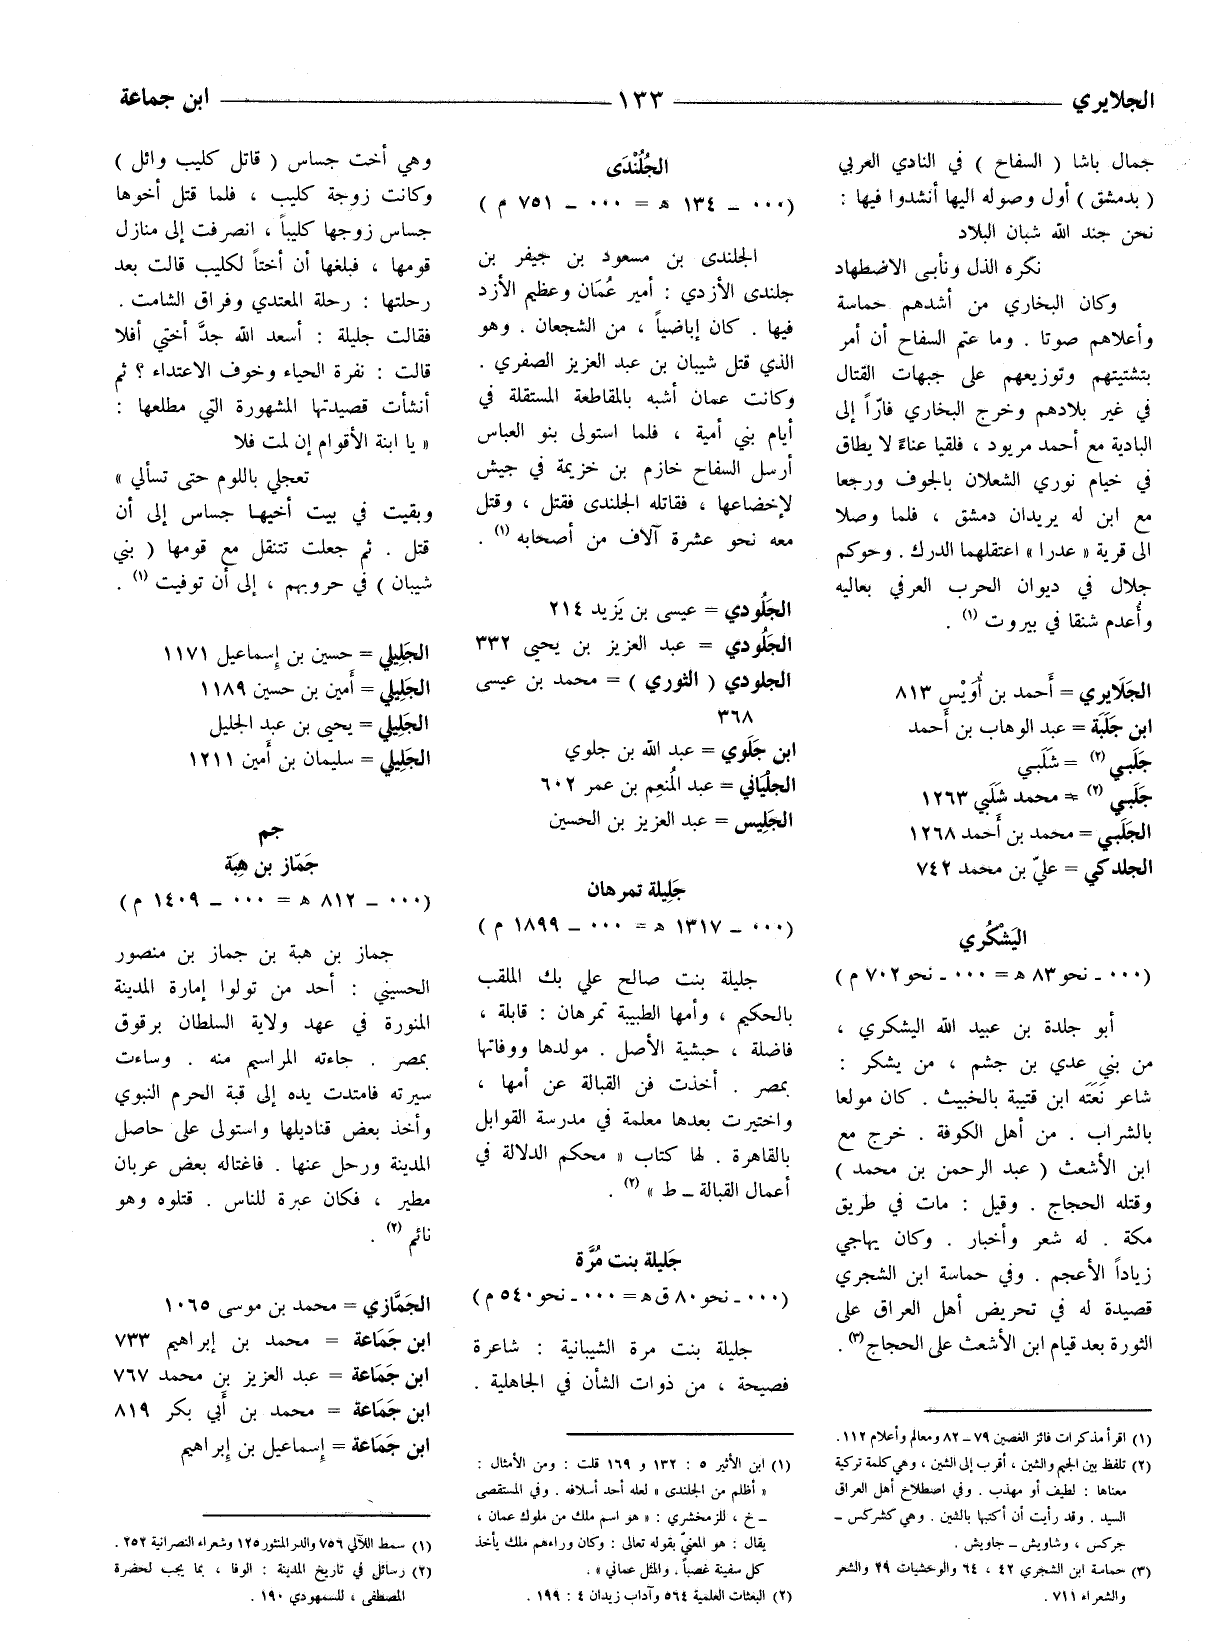 الجلايري ١٣٣ ابن جماعة
جمال باشا ( السفاح ) في النادي العربي
( بدمشق ) أول وصوله اليها أنشدوا فيها :
نحن جند الله شبان البلاد
نكره الذل ونأبى الاضطهاد
وكان البخاري من أشدهم حماسة
وأعلاهم صوتا . وما عتم السفاح أن أمر
بتشتيتهم وتوزيعهم على جبهات القتال
في غير بلادهم وخرج البخاري فارّاً إلى
البادية مع أحمد مريود ، فلقيا عناءً لا يطاق
في خيام نوري الشعلان بالجوف ورجعا
مع ابن له يريدان دمشق ، فلما وصلا
الى قرية « عدرا » اعتقلهما الدرك . وحوكم
جلال في ديوان الحرب العرفي بعاليه
وأُعدم شنقا في بيروت (١) .
الجَلَايري = أَحمد بن أُوَيْس ٨١٣
ابن جَلَبَة = عبد الوهاب بن أَحمد
جَلَبي (٢) = شَلَبي
جَلَبي (٢) = محمد شَلَبي ١٢٦٣
الجَلَبي = محمد بن أَحمد ١٢٦٨
الجلدكي = عليّ بن محمد ٧٤٢
اليَشْكُري
(٠٠٠ ـ نحو ٨٣ هـ = ٠٠٠ ـ نحو ٧٠٢ م )
أبو جلدة بن عبيد الله اليشكري ،
من بني عدي بن جشم ، من يشكر :
شاعر نَعَتَه ابن قتيبة بالخبيث . كان مولعا
بالشراب . من أهل الكوفة . خرج مع
ابن الأشعث ( عبد الرحمن بن محمد )
وقتله الحجاج . وقيل : مات في طريق
مكة . له شعر وأخبار . وكان يهاجي
زياداً الأعجم . وفي حماسة ابن الشجري
قصيدة له في تحريض أهل العراق على
الثورة بعد قيام ابن الأشعث على الحجاج (٣) .
(١) اقرأ مذكرات فائز الغصين ٧٩ ـ ٨٢ ومعالم وأعلام ١١٢ .
(٢) تلفظ بين الجيم والشين ، أقرب إلى الشين ، وهي كلمة تركية
معناها : لطيف أو مهذب . وفي اصطلاح أهل العراق
السيد . وقد رأيت أن أكتبها بالشين . وهي كشركس ـ
جركس ، وشاويش ـ جاويش .
(٣) حماسة ابن الشجري ٤٢ ، ٦٤ والوحشيات ٤٩ والشعر
والشعراء ٧١١ .
الجُلُنْدَى
(٠٠٠ ـ ١٣٤ هـ = ٠٠٠ ـ ٧٥١ م )
الجلندى بن مسعود بن جيفر بن
جلندى الأزدي : أمير عُمَان وعظيم الأزد
فيها . كان إباضياً ، من الشجعان . وهو
الذي قتل شيبان بن عبد العزيز الصفري .
وكانت عمان أشبه بالمقاطعة المستقلة في
أيام بني أمية ، فلما استولى بنو العباس
أرسل السفاح خازم بن خزيمة في جيش
لإخضاعها ، فقاتله الجلندى فقتل ، وقتل
معه نحو عشرة آلاف من أصحابه (١) .
الجَلُودي = عيسى بن يَزيد ٢١٤
الجَلُودي = عبد العزيز بن يحيى ٣٣٢
الجلودي ( الثوري ) = محمد بن عيسى
٣٦٨
ابن جَلَوي = عبد الله بن جلوي
الجلْيَاني = عبد المُنعِم بن عمر ٦٠٢
الجَلِيس = عبد العزيز بن الحسين
جَلِيلة تمرهان
(٠٠٠ ـ ١٣١٧ هـ = ٠٠٠ ـ ١٨٩٩ م )
جليلة بنت صالح علي بك الملقب
بالحكيم ، وأمها الطبيبة تمرهان : قابلة ،
فاضلة ، حبشية الأصل . مولدها ووفاتها
بمصر . أخذت فن القبالة عن أمها ،
واختيرت بعدها معلمة في مدرسة القوابل
بالقاهرة . لها كتاب « محكم الدلالة في
أعمال القبالة ـ ط » (٢) .
جَلِيلة بنت مُرَّة
(٠٠٠ ـ نحو ٨٠ ق هـ = ٠٠٠ ـ نحو ٥٤٠ م )
جليلة بنت مرة الشيبانية : شاعرة
فصيحة ، من ذوات الشأن في الجاهلية .
(١) ابن الأثير ٥ : ١٣٢ و ١٦٩ قلت : ومن الأمثال :
« أظلم من الجلندى » لعله أحد أسلافه . وفي المستقصى
ـ خ ، للزمخشري : « هو اسم ملك من ملوك عمان ،
يقال : هو المعنيّ بقوله تعالى : وكان وراءهم ملك يأخذ
كل سفينة غصباً . والمثل عماني » .
(٢) البعثات العلمية ٥٦٤ وآداب زيدان ٤ : ١٩٩ .
وهي أخت جساس ( قاتل كليب وائل )
وكانت زوجة كليب ، فلما قتل أخوها
جساس زوجها كليباً ، انصرفت إلى منازل
قومها ، فبلغها أن أختاً لكليب قالت بعد
رحلتها : رحلة المعتدي وفراق الشامت .
فقالت جليلة : أسعد الله جدَّ أختي أفلا
قالت : نفرة الحياء وخوف الاعتداء ؟ ثم
أنشأت قصيدتها المشهورة التي مطلعها :
« يا ابنة الأقوام إن لمت فلا
تعجلي باللوم حتى تسألي »
وبقيت في بيت أخيها جساس إلى أن
قتل . ثم جعلت تتنقل مع قومها ( بني
شيبان ) في حروبهم ، إلى أن توفيت (١) .
الجَلِيلي = حسين بن إِسماعيل ١١٧١
الجَلِيلي = أَمين بن حسين ١١٨٩
الجَلِيلي = يحيى بن عبد الجليل
الجَلِيلي = سليمان بن أَمين ١٢١١
جم
جَمّاز بن هِبَة
(٠٠٠ ـ ٨١٢ هـ = ٠٠٠ ـ ١٤٠٩ م )
جماز بن هبة بن جماز بن منصور
الحسيني : أحد من تولوا إمارة المدينة
المنورة في عهد ولاية السلطان برقوق
بمصر . جاءته المراسيم منه . وساءت
سيرته فامتدت يده إلى قبة الحرم النبوي
وأخذ بعض قناديلها واستولى على حاصل
المدينة ورحل عنها . فاغتاله بعض عربان
مطير ، فكان عبرة للناس . قتلوه وهو
نائم (٢) .
الجَمَّازي = محمد بن موسى ١٠٦٥
ابن جَمَاعة = محمد بن إِبراهيم ٧٣٣
ابن جَمَاعة = عبد العزيز بن محمد ٧٦٧
ابن جَمَاعة = محمد بن أَبي بكر ٨١٩
ابن جَمَاعة = إِسماعيل بن إِبراهيم
(١) سمط اللآلي ٧٥٦ والدر المنثور ١٢٥ وشعراء النصرانية ٢٥٢ .
(٢) رسائل في تاريخ المدينة : الوفا ، بما يجب لحضرة
المصطفى ، للسمهودي ١٩٠ .